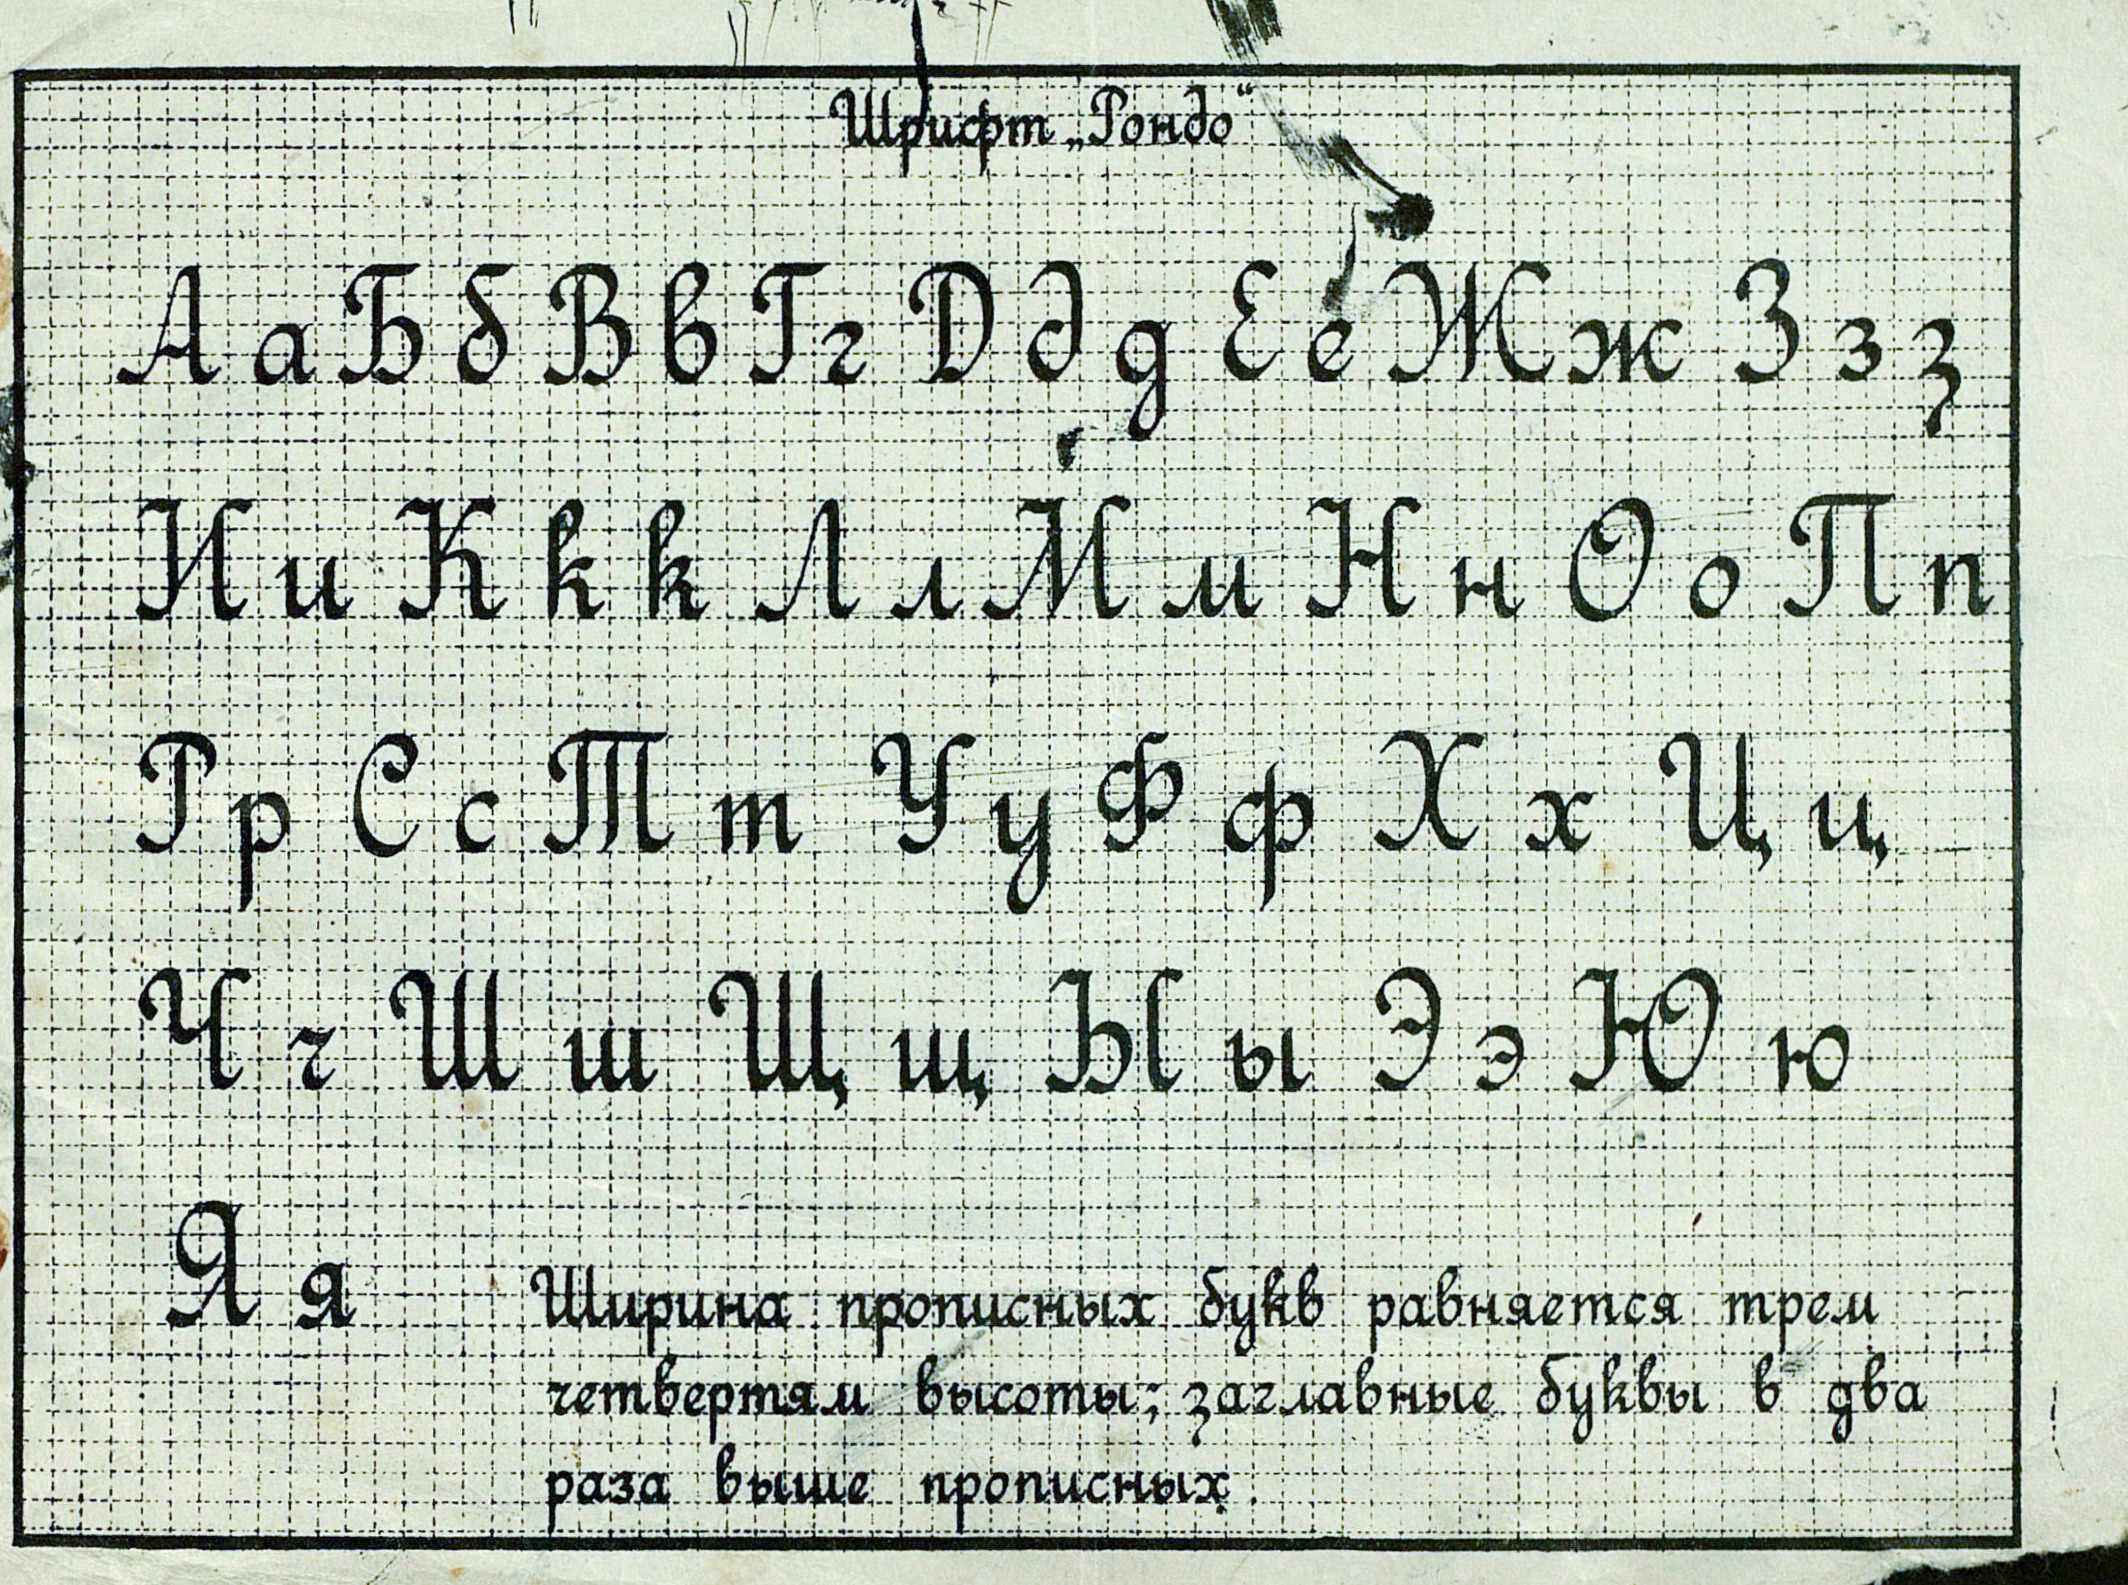 Шрифт „Рондо“
А а Б б В в Г г Д д д Е е Ж ж З з з
И и К к к Л л М м Н н О о П п
Р р С с Т т У у Ф ф Х х Ц ц
Ч ч Ш ш Щ щ Ы ы Э э Ю ю
Я я
Ширина прописных букв равняется трем
четвертям высоты; заглавные буквы в два
раза выше прописных.